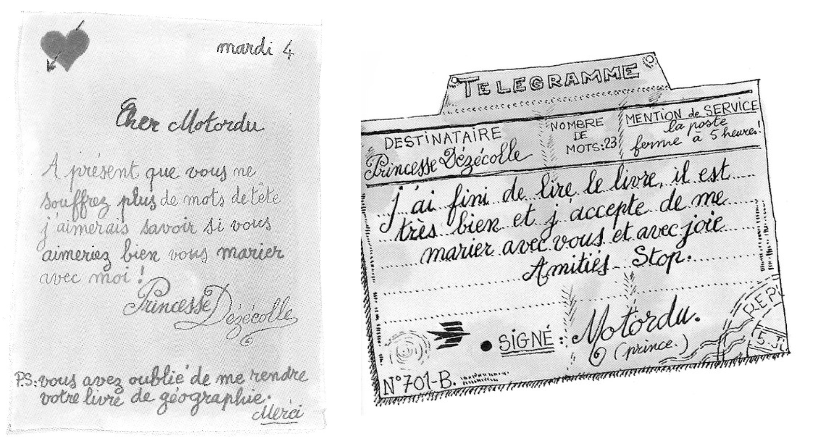 mardi 4
Cher Motordu
A présent que vous ne
souffrez plus de mots de tête
j'aimerais savoir si vous
aimeriez bien vous marier
avec moi !
Princesse Dézécolle
P.S: vous avez oublié de me rendre
votre livre de géographie.
Merci
TELEGRAMME
DESTINATAIRE
Princesse Dézécolle
NOMBRE
DE
MOTS: 23
MENTION de SERVICE
la poste
ferme à 5 heures!
j'ai fini de lire le livre, il est
très bien et j'accepte de me
marier avec vous et avec joie
Amitiés. Stop.
SIGNÉ: Motordu.
(prince.)
N°701-B.
REP